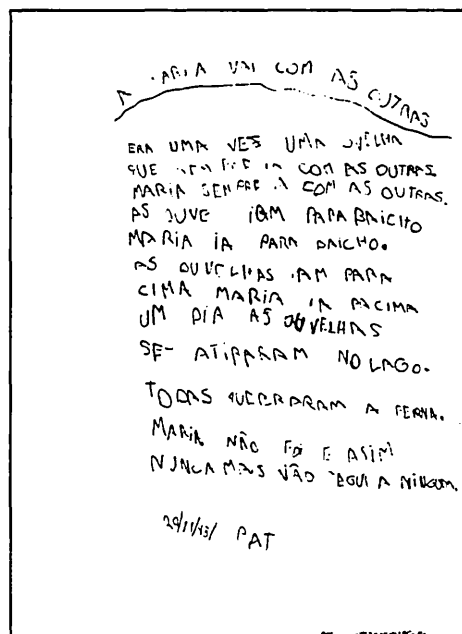 A MARIA VAI COM AS OUTRAS
ERA UMA VES UMA OVELHA
QUE SEMPRE IA COM AS OUTRAS.
MARIA SEMPRE IA COM AS OUTRAS.
AS OUVE IAM PARA BAICHO
MARIA IA PARA BAICHO.
AS OUVELHAS IAM PARA
CIMA MARIA IA PACIMA
UM DIA AS OUVELHAS
SE- ATIRARAM NO LAGO.
TODAS QUEBRARAM A PERNA.
MARIA NÃO FOI E ASIM
NUNCA MAIS VÃO A NINGUM.
PAT